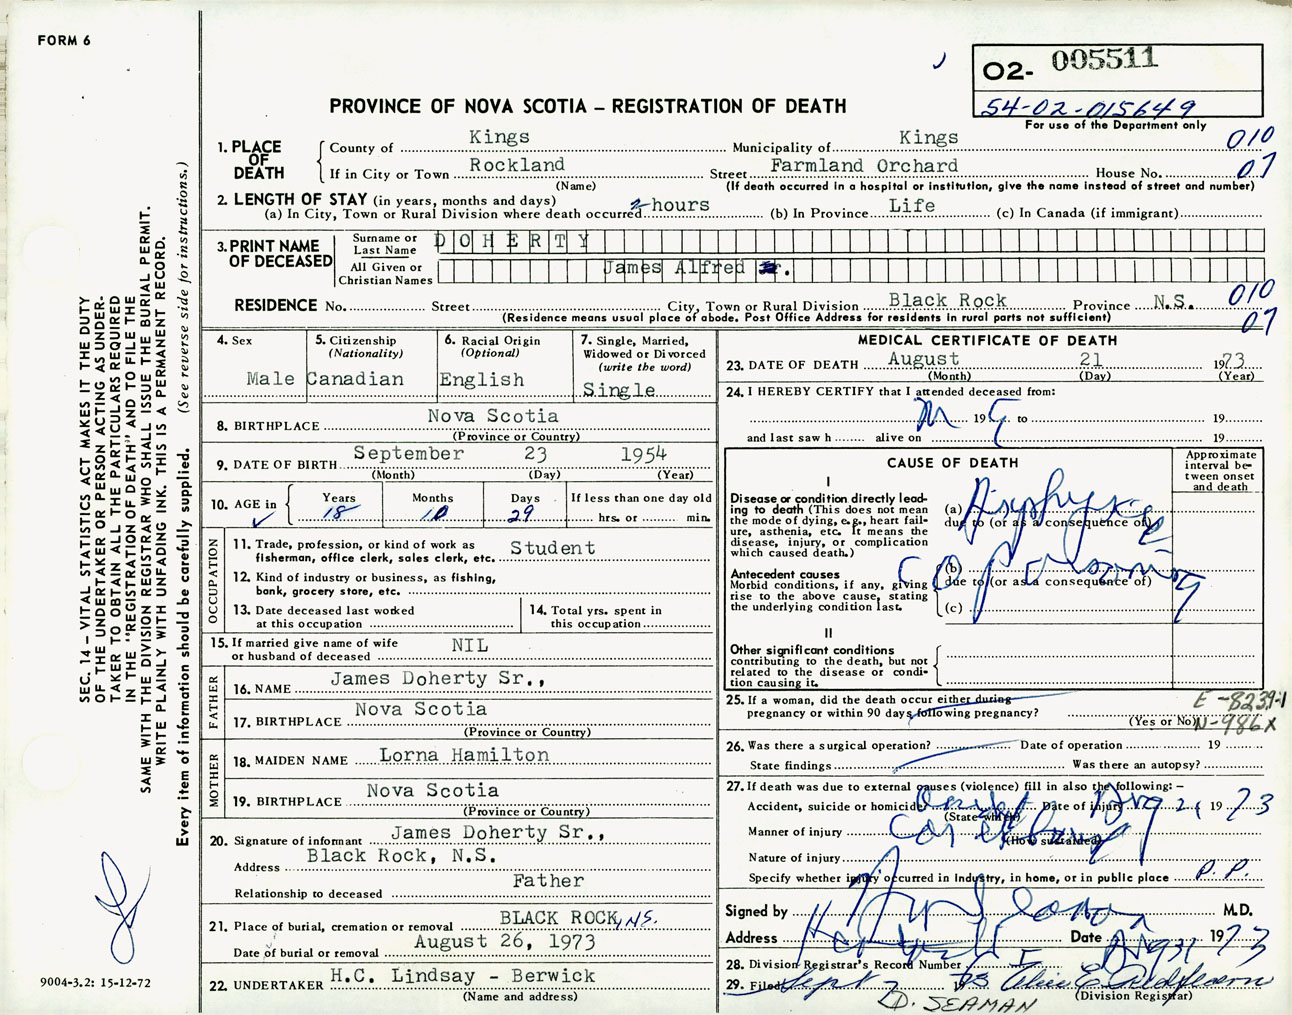 FORM 6
O2- 005511
54-02-015649
For use of the Department only
PROVINCE OF NOVA SCOTIA – REGISTRATION OF DEATH
1. PLACE OF DEATH
County of Kings Municipality of Kings 010
If in City or Town Rockland Street Farmland Orchard House No. 07
(Name) (If death occurred in a hospital or institution, give the name instead of street and number)
2. LENGTH OF STAY (in years, months and days)
(a) In City, Town or Rural Division where death occurred 2 hours (b) In Province Life (c) In Canada (if immigrant)
3. PRINT NAME OF DECEASED
Surname or Last Name DOHERTY
All Given or Christian Names James Alfred
RESIDENCE No. Street City, Town or Rural Division Black Rock Province N.S. 010
(Residence means usual place of abode. Post Office Address for residents in rural parts not sufficient) 07
4. Sex
Male
5. Citizenship
(Nationality)
Canadian
6. Racial Origin
(Optional)
English
7. Single, Married,
Widowed or Divorced
(write the word)
Single
8. BIRTHPLACE Nova Scotia
(Province or Country)
9. DATE OF BIRTH September 23 1954
(Month) (Day) (Year)
10. AGE in
Years Months Days If less than one day old
18 10 29 hrs. or min.
OCCUPATION
11. Trade, profession, or kind of work as
fisherman, office clerk, sales clerk, etc. Student
12. Kind of industry or business, as fishing,
bank, grocery store, etc.
13. Date deceased last worked
at this occupation
14. Total yrs. spent in
this occupation
15. If married give name of wife
or husband of deceased NIL
FATHER
16. NAME James Doherty Sr.,
17. BIRTHPLACE Nova Scotia
(Province or Country)
MOTHER
18. MAIDEN NAME Lorna Hamilton
19. BIRTHPLACE Nova Scotia
(Province or Country)
20. Signature of informant James Doherty Sr.,
Address Black Rock, N.S.
Relationship to deceased Father
21. Place of burial, cremation or removal BLACK ROCK, NS.
Date of burial or removal August 26, 1973
22. UNDERTAKER H.C. Lindsay - Berwick
(Name and address)
MEDICAL CERTIFICATE OF DEATH
23. DATE OF DEATH August 21 1973
(Month) (Day) (Year)
24. I HEREBY CERTIFY that I attended deceased from:
19 to 19
and last saw h alive on 19
CAUSE OF DEATH
Approximate interval between onset and death
I
Disease or condition directly lead-
ing to death (This does not mean
the mode of dying, e.g., heart fail-
ure, asthenia, etc. It means the
disease, injury, or complication
which caused death.)
(a) Asphyxia
due to (or as a consequence of)
Antecedent causes
Morbid conditions, if any, giving
rise to the above cause, stating
the underlying condition last.
(b) CO poisoning
due to (or as a consequence of)
(c)
II
Other significant conditions
contributing to the death, but not
related to the disease or condi-
tion causing it.
25. If a woman, did the death occur either during
pregnancy or within 90 days following pregnancy?
(Yes or No)
E-823.9-1
N-986X
26. Was there a surgical operation? Date of operation 19
State findings Was there an autopsy?
27. If death was due to external causes (violence) fill in also the following: –
Accident, suicide or homicide Date of injury Aug 21 1973
(State which)
Manner of injury
(How sustained)
Nature of injury
Specify whether injury occurred in Industry, in home, or in public place P.P.
Signed by M.D.
Address Date 1973
28. Division Registrar's Record Number
29. Filed Sept 73
(Division Registrar)
D. SEAMAN
SEC. 14 – VITAL STATISTICS ACT MAKES IT THE DUTY
OF THE UNDERTAKER OR PERSON ACTING AS UNDER-
TAKER TO OBTAIN ALL THE PARTICULARS REQUIRED
IN THE "REGISTRATION OF DEATH" AND TO FILE THE
SAME WITH THE DIVISION REGISTRAR WHO SHALL ISSUE THE BURIAL PERMIT.
WRITE PLAINLY WITH UNFADING INK. THIS IS A PERMANENT RECORD.
Every item of information should be carefully supplied. (See reverse side for instructions.)
9004-3.2: 15-12-72